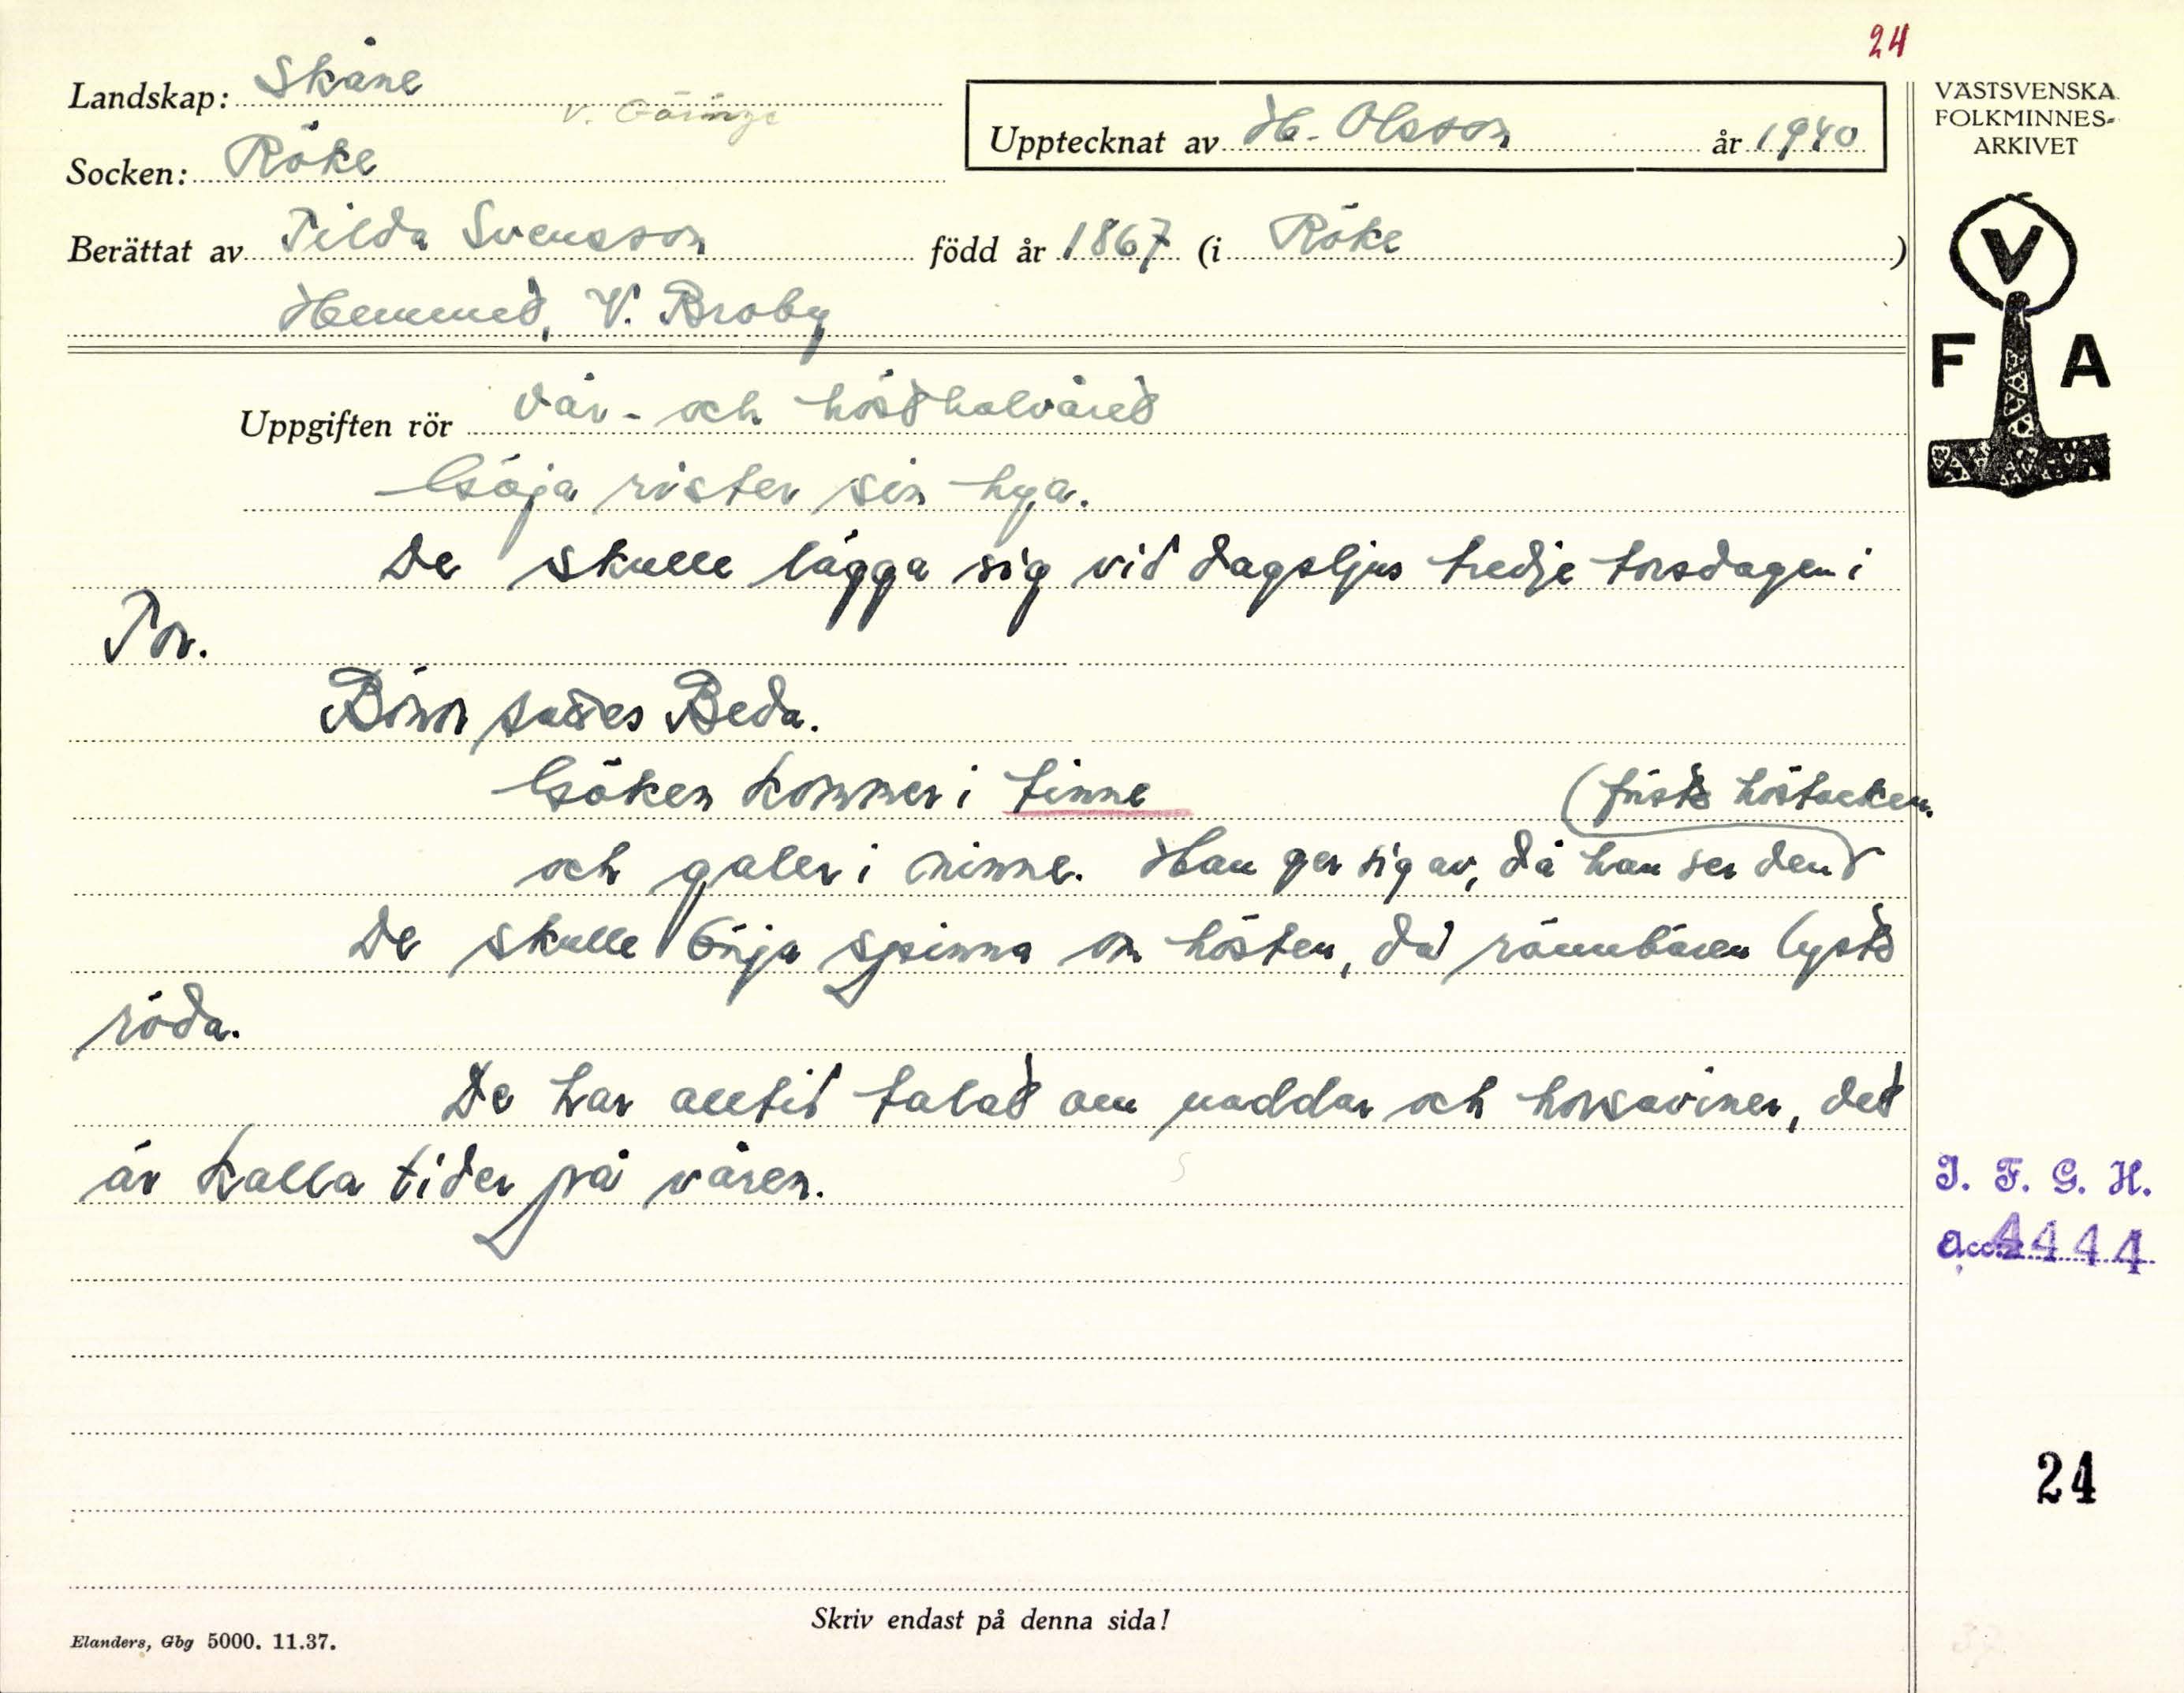 24
Landskap: Skåne
V. Göinge
Upptecknat av H. Olsson år 1940
Socken: Röke
Berättat av Tilda Svensson född år 1867 (i Röke )
Hemmed, V. Broby
VÄSTSVENSKA
FOLKMINNES-
ARKIVET
V
F A
Uppgiften rör Vår- och hösthalvåret
Göja rister sin hya.
De skulle lägga sig vid dagsljus tredje torsdagen i
Tor.
Bönor sattes Beda.
Göken kommer i tinne (första höstacken.
och galer i minne. Han ger sig av, då han ser den
De skulle börja spinna om hösten, då rönnbären lyste
röda.
De har alltid talat om uaddar och horsaviner, det
är kalla tider på våren.
I. F. G. H.
acc. 4444
24
Skriv endast på denna sida!
Elanders, Gbg 5000. 11.37.